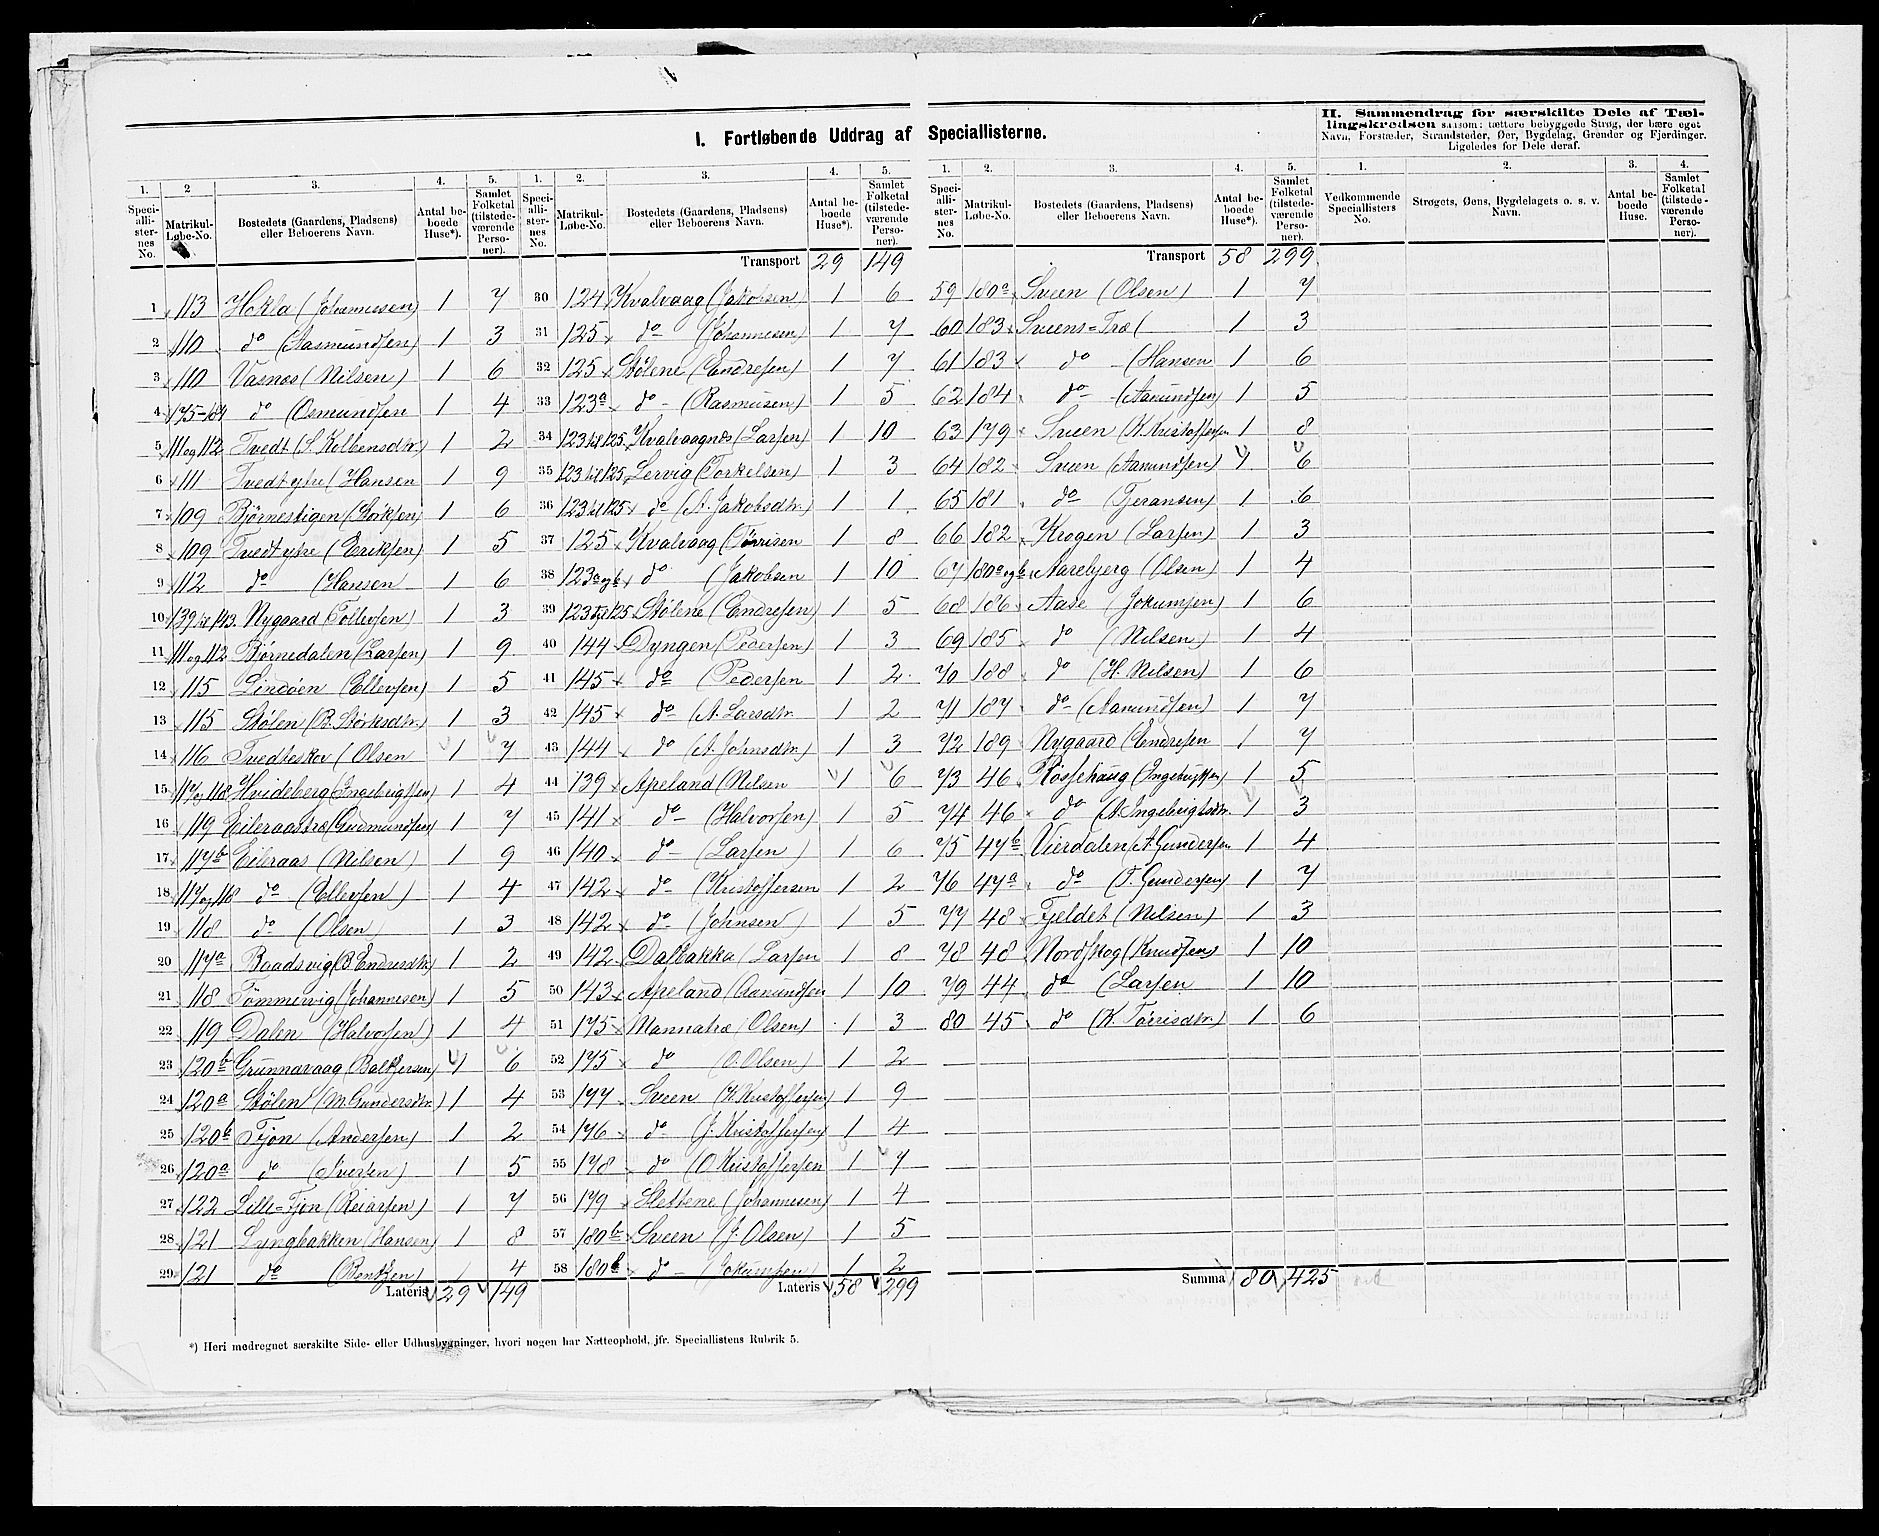 I. Fortløbende Uddrag af Speciallisterne.
II. Sammendrag for særskilte Dele af Tællingskredsen saasom: tættere bebyggede Strøg, der bære eget Navn, Forstæder, Strandsteder, Øer, Bygdelag, Grender og Fjerdinger. Ligeledes for Dele deraf.
1. 2 3. 4. 5.
Speciallisternes No. Matrikul-Løbe-No. Bostedets (Gaardens, Pladsens) eller Beboerens Navn. Antal beboede Huse*). Samlet Folketal (tilstedeværende Personer).
1 113 Hokla (Johannessen) 1 7
2 110 do (Aasmundsen) 1 3
3 110 Vasnes (Nilsen) 1 6
4 175-184 do (Osmundsen 1 4
5 111 og 112 Tvedt (S. Kolbensdtr.) 1 2
6 111 Tvedt ytre (Hansen 1 9
7 109 Bjørnestigen (Størksen) 1 6
8 109 Tvedt ytre (Eriksen) 1 5
9 112 do (Hansen 1 6
10 139 til 143. Nygaard (Tollevsen) 1 3
11 111 og 112 Børnedalen (Larsen) 1 9
12 115 Lindøen (Ellevsen) 1 5
13 115 Stølen (B. Størksdtr.) 1 3
14 116 Tvedteskov (Olsen 1 7
15 117 og 118 Hvideberg (Ingebrigtsen) 1 4
16 119 Eileraastræ (Gudmundsen) 1 7
17 117b Eileraas (Nilsen) 1 9
18 117 og 118 do (Ellevsen) 1 4
19 118 do (Olsen) 1 3
20 117a Baadsvig (B. Endresdtr.) 1 2
21 118 Tømmervig (Johannesen) 1 5
22 119 Dalen (Halvorsen) 1 4
23 120b Grunnavaag (Baltsersen) 1 6
24 120a Stølen (M. Gundersdtr. 1 4
25 120b Tjøn (Andersen) 1 2
26 120a do (Iversen) 1 5
27 122 Lille-Tjøn (Reiarsen) 1 7
28 121 Lyngbakken (Hansen) 1 8
29 121 do (Bentsen) 1 4
Lateris 29 149
1. 2. 3. 4. 5.
Speciallisternes No. Matrikul-Løbe-No. Bostedets (Gaardens, Pladsens) eller Beboerens Navn. Antal beboede Huse*). Samlet Folketal (tilstedeværende Personer).
Transport 29 149
30 124 Kvalvaag (Jakobsen) 1 6
31 125 do (Johannesen) 1 7
32 125 Stølene (Endresen) 1 7
33 123a do (Rasmusen) 1 5
34 123 til 125 Kvalvaagnes (Larsen) 1 10
35 123 til 125 Lervig (Torkelsen) 1 3
36 123 til 125 do (A. Jakobsdtr.) 1 1
37 125 Kvalvaag (Tørrisen 1 8
38 123a og b do (Jakobsen 1 10
39 123 til 125 Stølene (Endresen) 1 5
40 144 Dyngen (Pedersen) 1 3
41 145 do (Pedersen 1 2
42 145 do (A. Larsdtr. 1 2
43 144 do (A. Johnsdtr.) 1 3
44 139 Apeland (Nilsen 1 6
45 141 do (Halvorsen) 1 5
46 140 do (Larsen) 1 6
47 142 do (Kristoffersen 1 2
48 142 do (Johnsen) 1 5
49 142 Dalbakka (Larsen 1 8
50 143 Apeland (Aanundsen 1 10
51 175 Mannatræ (Olsen) 1 3
52 175 do (O. Olsen) 1 2
53 177 Sveen (K. Kristoffersen) 1 9
54 176 do (J. Kristoffersen) 1 4
55 178 do (O Kristoffersen 1 7
56 179 Slettene (Johannesen) 1 4
57 180b Sveen (J. Olsen) 1 5
58 180b do (Jokumsen) 1 2
Lateris 58 299
1. 2. 3. 4. 5.
Speciallisternes No. Matrikul-Løbe-No. Bostedets (Gaardens, Pladsens) eller Beboerens Navn. Antal beboede Huse*). Samlet Folketal (tilstedeværende Personer).
Transport 58 299
59 180a Sveen (Olsen) 1 7
60 183 Sveens-Træ ( 1 3
61 183 do (Hansen 1 6
62 184 do (Aanundsen) 1 5
63 179 Sveen (K. Kristoffersen 1 8
64 182 Sveen (Aanundsen) 1 6
65 181 do (Geransen) 1 6
66 182 Krogen (Larsen) 1 3
67 180a og b Aarebjerg (Olsen) 1 4
68 186 Aase (Jokumsen) 1 6
69 185 do (Nilsen) 1 4
70 188 do (H. Nilsen) 1 6
71 187 do (Aanundsen) 1 7
72 189 Nygaard (Endresen 1 7
73 46 Røssehaug (Ingebrigtsen) 1 5
74 46 do (A. Ingebrigtsdtr. 1 3
75 47b Vierdalen (A Gundersen 1 4
76 47a do (T. Gundersen) 1 7
77 48 Fjeldet (Nilsen) 1 3
78 48 Nordskog (Knudsen) 1 10
79 44 do (Larsen 1 10
80 45 do (K. Tørrisdtr.) 1 6
Summa 80 425
1. 2. 3. 4.
Vedkommende Speciallisters No. Strøgets, Øens, Bygdelagets o. s. v. Navn. Antal beboede Huse. Samlet Folketal (tilstedeværende Personer).
*) Heri medregnet særskilte Side- eller Udhusbygninger, hvori nogen har Natteophold, jfr. Speciallistens Rubrik 5.